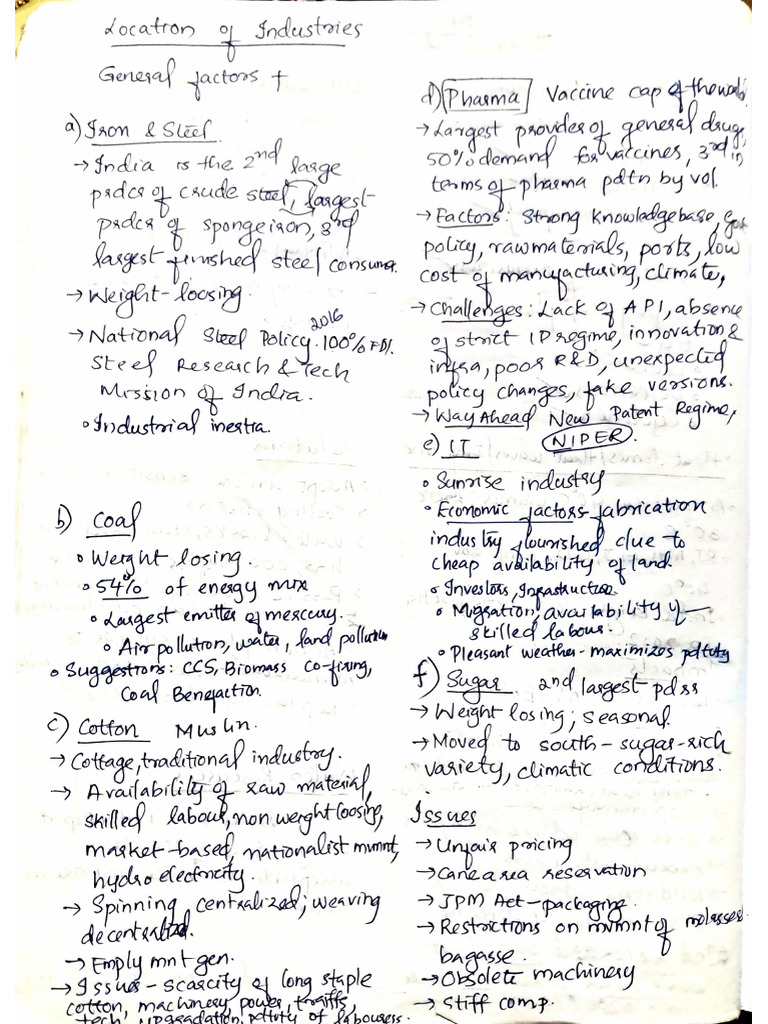 Location of Industries
General factors +
a) Iron & Steel
→ India is the 2nd large
prdcr of crude steel, largest
prdcr of sponge iron, 3rd
largest finished steel consumer.
→ Weight-loosing
→ National Steel Policy 2016. 100% FDI.
Steel Research & Tech
Mission of India.
• Industrial inertia.
b) Coal
• Weight losing.
• 54% of energy mix
• Largest emitter of mercury.
• Air pollution, water, land pollution
• Suggestions: CCS, Biomass co-firing,
Coal Benefaction.
c) Cotton Muslin.
→ Cottage, traditional industry.
→ Availability of raw material,
skilled labour, non weight loosing,
market-based, nationalist mvmnt,
hydro electricity.
→ Spinning centralized; weaving
decentralized.
→ Emplymnt gen.
→ Issues - scarcity of long staple
cotton, machinery, power, traiffs,
tech upgradation, pdtvty of labouress.
d) Pharma Vaccine cap of the world
→ Largest provider of general drug,
50% demand for vaccines, 3rd in
terms of pharma pdtn by vol.
→ Factors: Strong knowledge base,
policy, raw materials, ports, low
cost of manufacturing, climate,
→ Challenges: Lack of API, absence
of strict IP regime, innovation &
infra, poor R&D, unexpected
policy changes, fake versions.
→ Way Ahead New Patent Regime,
NIPER.
e) IT
• Sunrise industry
• Economic factors - fabrication
industry flourished due to
cheap availability of land.
• Investors, Infrastructure
• Migration, availability of
skilled labour.
• Pleasant weather - maximizes pdtvty
f) Sugar 2nd largest pdsr
→ Weight losing; seasonal.
→ Moved to south - sugar-rich
variety, climatic conditions.
Issues
→ Unfair pricing
→ Cane area reservation
→ JPM Act - packaging.
→ Restrictions on mvmnt of molasses.
bagasse.
→ Obsolete machinery
→ Stiff comp.